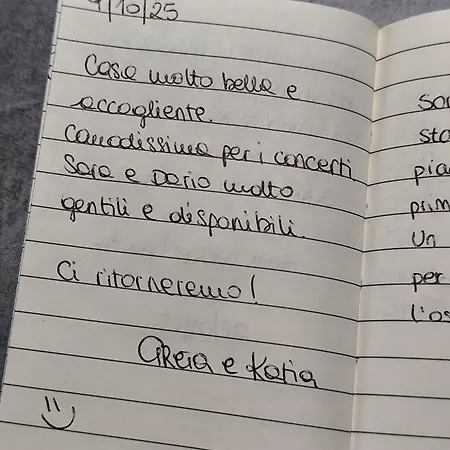 /10/25
Casa molto bella e
accogliente.
Comodissima per i concerti
Sara e Dario molto
gentili e disponibili.
Ci ritorneremo!
Greta e Katia
per
Un